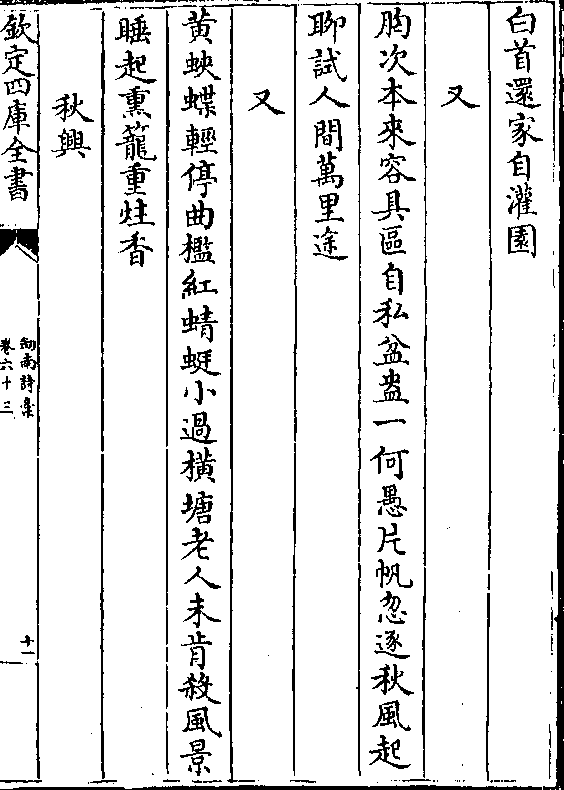 白首還家自灌園
又
胸次本來容具區自私盆盎一何愚片帆忽逐秋風起
聊試人間萬里途
又
黄蛺蝶輕停曲檻紅蜻蜓小過横塘老人未肯殺風景
睡起熏籠重炷香
秋興
欽定四庫全書
劒南詩集
卷六十三
十一